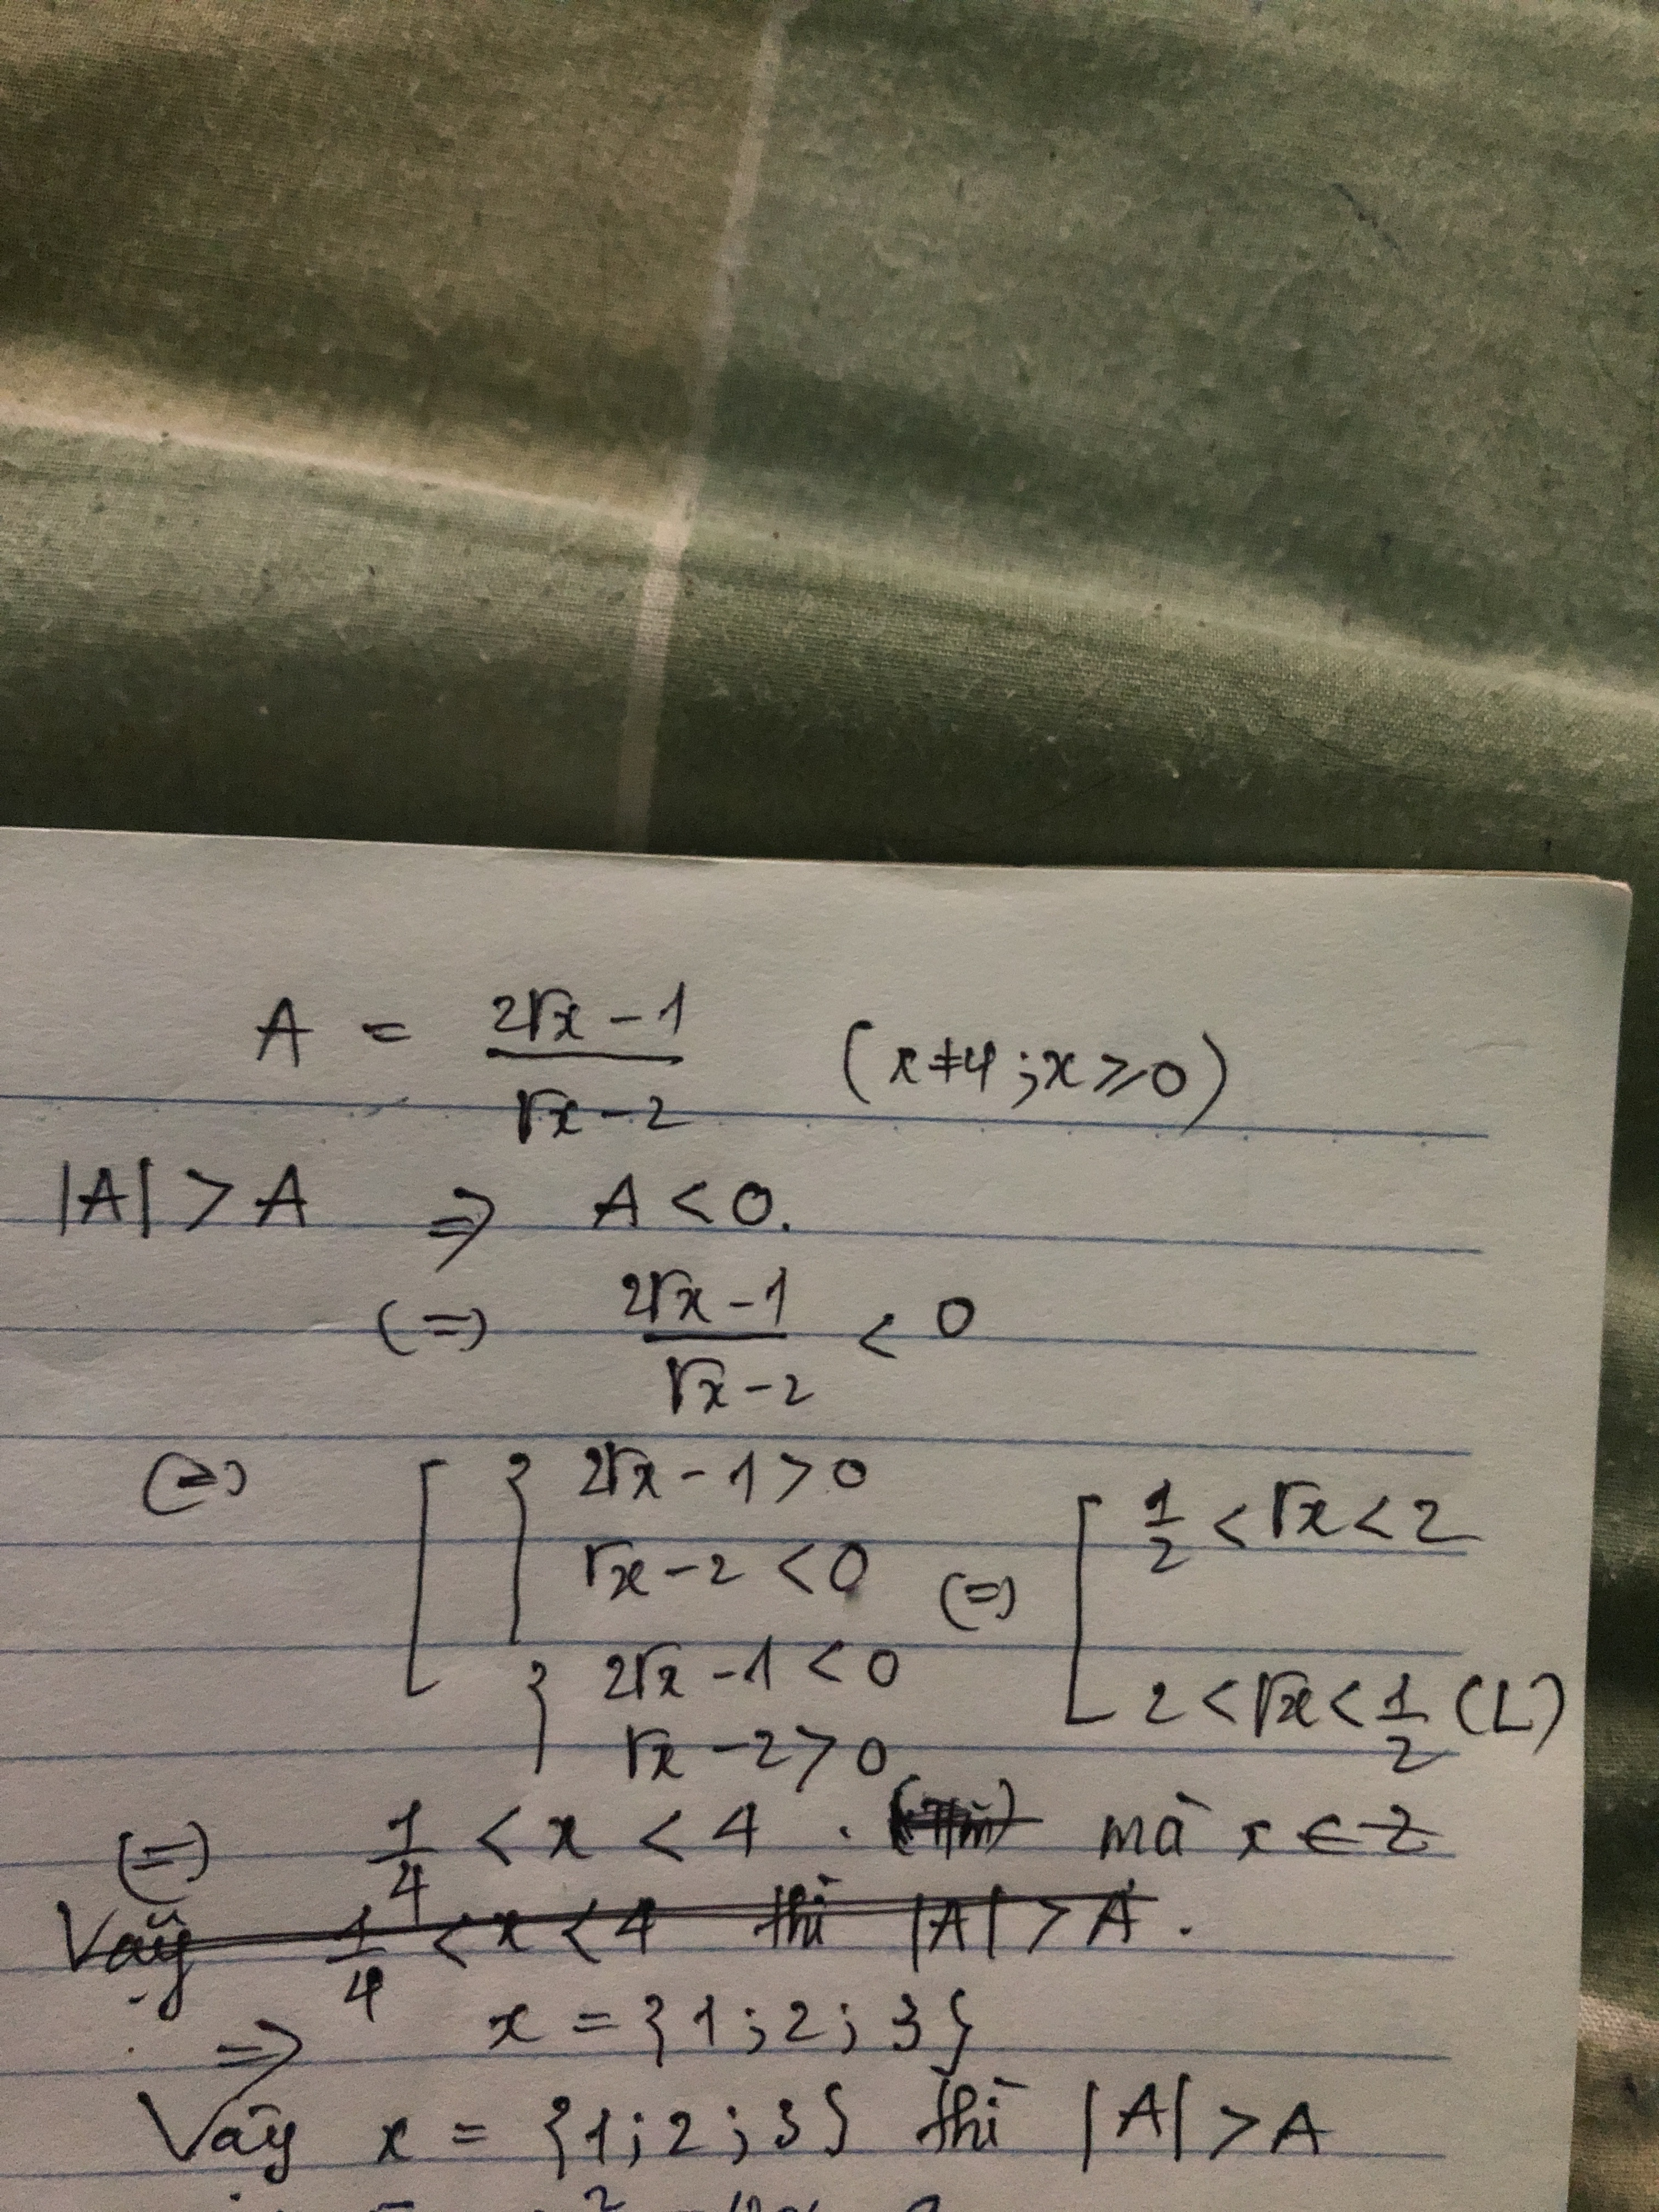 A = (2√x − 1)/(√x − 2) (x ≠ 4 ; x ⩾ 0)
|A| > A ⇒ A < 0.
(=) (2√x − 1)/(√x − 2) < 0
(=) [ { 2√x − 1 > 0
√x − 2 < 0 (=) [ 1/2 < √x < 2
{ 2√x − 1 < 0
√x − 2 > 0 2 < √x < 1/2 (L)
(=) 1/4 < x < 4 . mà x ∈ Z
Vậy 1/4 < x < 4 thì |A| > A .
⇒ x = {1 ; 2 ; 3}
Vậy x = {1 ; 2 ; 3} thì |A| > A